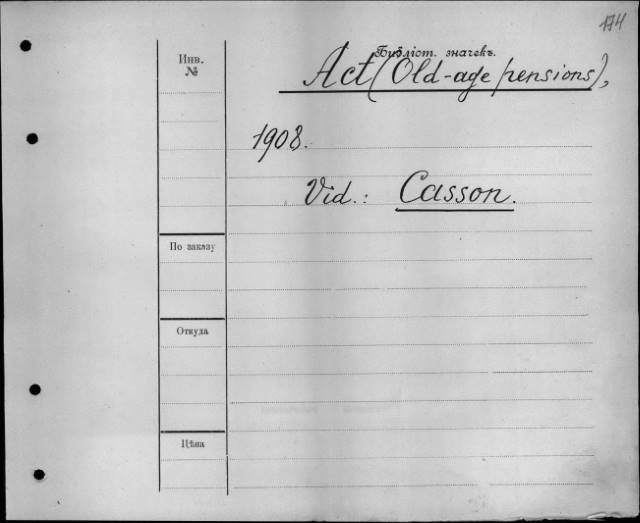 174
Библіот. значекъ.
Инв.
№
Act (Old-age pensions),
1908.
Vid.: Casson.
По заказу
Откуда
Цѣна